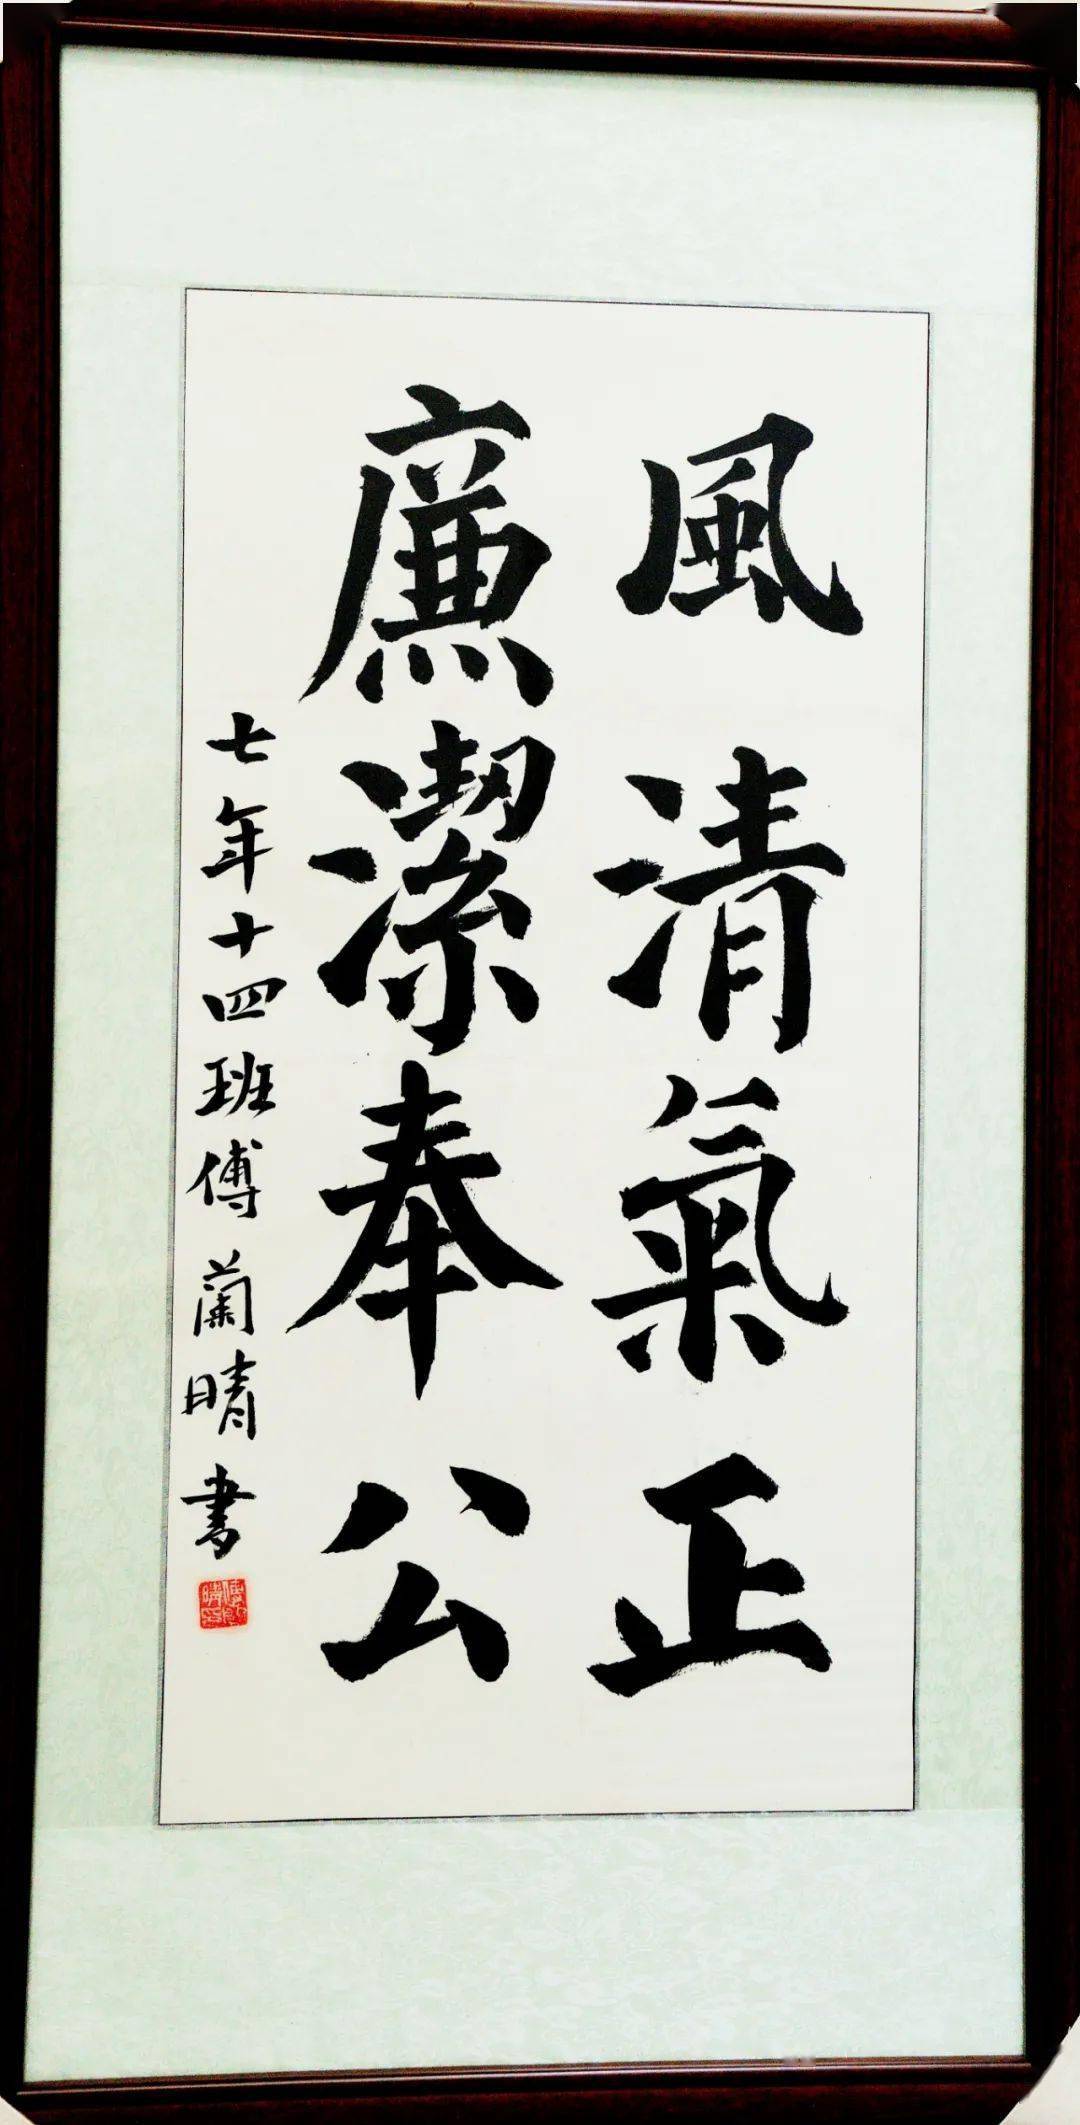 風清氣正
廉潔奉公
七年十四班傅蘭晴书